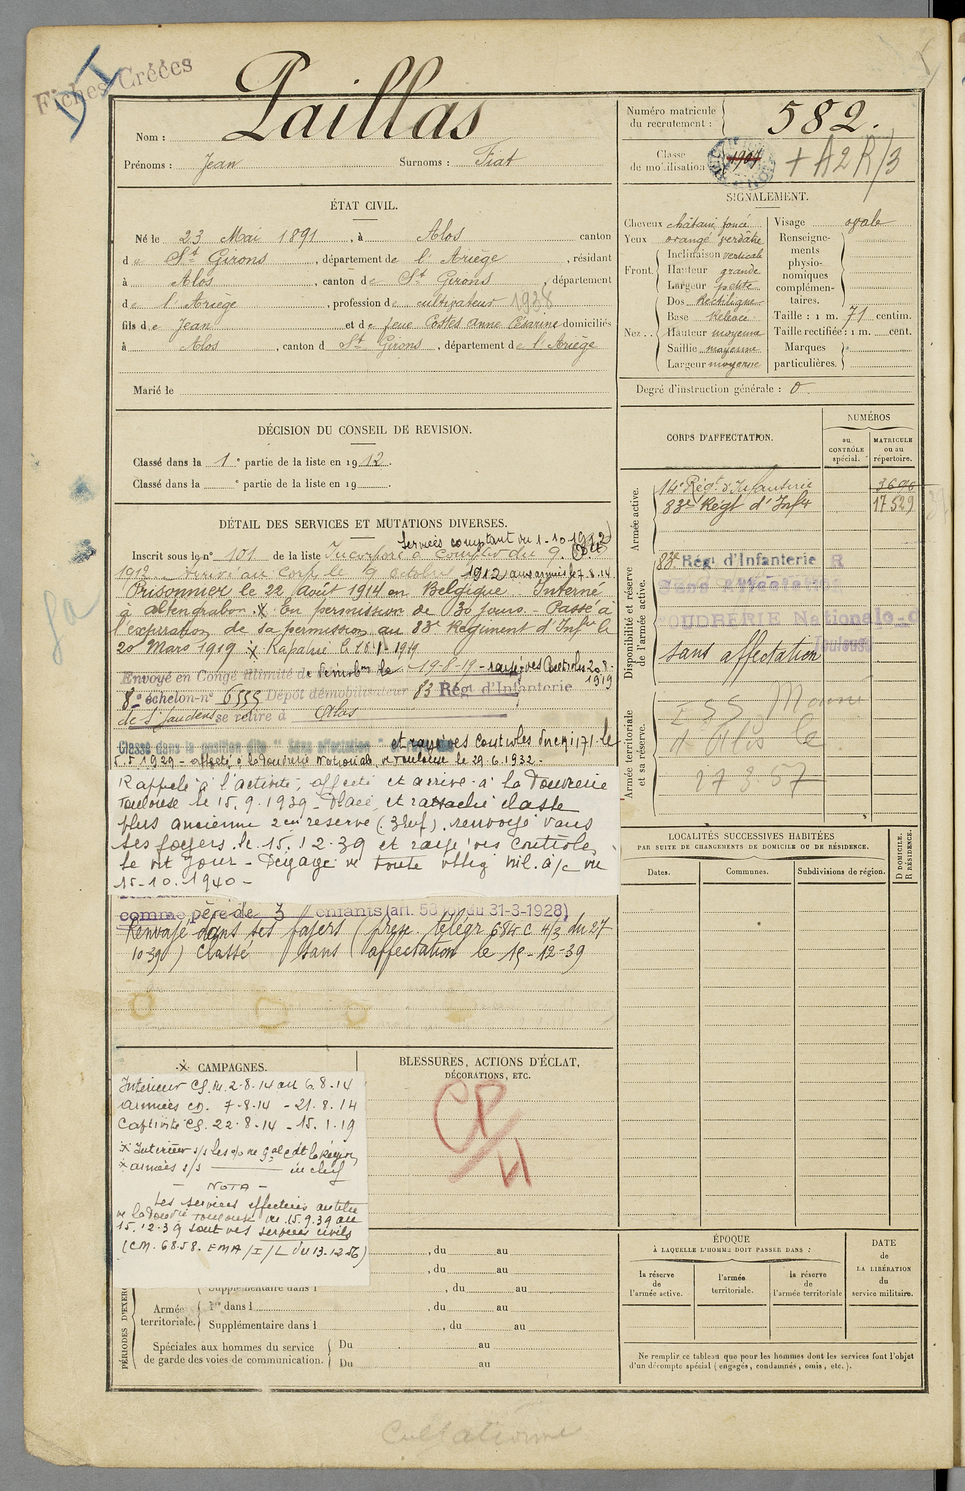 Fiches Créées
Nom : Paillas
Prénoms : Jean Surnoms : Fiat
Numéro matricule du recrutement : 582.
Classe de mobilisation 1907 + A2R/3
ÉTAT CIVIL.
Né le 23 Mai 1891, à Alos canton
de St Girons, département de l'Ariège, résidant
à Alos, canton de St Girons, département
de l'Ariège, profession de cultivateur 1928
fils de Jean et de feue Costes Anne Césarine domiciliés
à Alos, canton d St Girons, département de l'Ariège
Marié le
SIGNALEMENT.
Cheveux châtain foncé
Yeux orangé verdâtre
Front. Inclinaison verticale
Hauteur grande
Largeur petite
Nez. Dos Rectiligne
Base Relevée
Hauteur moyenne
Saillie moyenne
Largeur moyenne
Visage ovale
Renseignements physionomiques complémentaires.
Taille : 1 m. 71 centim.
Taille rectifiée : 1 m. cent.
Marques particulières.
Degré d'instruction générale : 0
DÉCISION DU CONSEIL DE REVISION.
Classé dans la 1e partie de la liste en 1912.
Classé dans la e partie de la liste en 19
CORPS D'AFFECTATION.
NUMÉROS
au CONTRÔLE spécial.
MATRICULE ou au répertoire.
Armée active.
14e Régt d'Infanterie 3696
83e Régt d'Infie 17529
Disponibilité et réserve de l'armée active.
83e Rég. d'Infanterie R
Sans Affectation
POUDRERIE Nationale
Toulouse
sans affectation
Armée territoriale et sa réserve.
à Alos le
27.3.57
DÉTAIL DES SERVICES ET MUTATIONS DIVERSES.
Services comptant du 1-10-1912
Inscrit sous le n° 101 de la liste Incorporé à compter du 9 8bre
1912. Arrivé au corps le 9 octobre 1912 aux armées le 7.8.14.
Prisonnier le 22 Août 1914 en Belgique. Interné
à Altengrabow. En permission de 30 jours - Passé à
l'expiration de sa permission au 83e Régiment d'Infie le
20 Mars 1919 Rapatrié le 16.1.1919
Envoyé en Congé illimité de démobon le 19-8-19 - rayé des Contrôles 20.8.1919
8e échelon - n° 6555 Dépôt démobilisateur 83 Rég. d'Infanterie
de St Gaudens se retire à Alos
Classé dans la position dite "Sans affectation" et rayé des contrôles du 171 le
5.5.1929 - affecté à la Poudrerie Nationale de Toulouse le 29.6.1932.
Rappelé à l'activité, affecté et arrivé à la Poudrerie
Toulouse le 15.9.1939 - Placé et rattaché classe
plus ancienne 2em reserve (3 enf). renvoyé dans
ses foyers le 15.12.39 et rayé des contrôles
le dit jour - Dégagé de toute oblig mil. à/c du
15-10.1940 -
comme père de 3 enfants (art. 58 loi du 31-3-1928)
Renvoyé dans ses foyers (presc. telegr 684 c 4/3 du 27
10 39) Classé sans affectation le 15-12-39
LOCALITÉS SUCCESSIVES HABITÉES
PAR SUITE DE CHANGEMENTS DE DOMICILE OU DE RÉSIDENCE.
Dates. Communes. Subdivisions de région.
D DOMICILE. R RÉSIDENCE.
CAMPAGNES.
Intérieur CS. du 2-8-14 au 6.8.14
armées CD. 7-8-14 - 21.8.14
Captivité CS. 22-8-14 - 15.1.19
- NOTA -
Les services effectués au titre
de la Poudrie Toulouse du 15.9.39 au
15.12.39 sont des services civils
(CM. 6858. EMA/I/L du 13.12.56)
BLESSURES, ACTIONS D'ÉCLAT,
DÉCORATIONS, ETC.
, du au
, du au
Supplémentaire dans l , du au
PÉRIODES D'EXERC
Armée territoriale. 1re dans l , du au
Supplémentaire dans l , du au
Spéciales aux hommes du service de garde des voies de communication. Du au
Du au
ÉPOQUE
À LAQUELLE L'HOMME DOIT PASSER DANS :
la réserve de l'armée active.
l'armée territoriale.
la réserve de l'armée territoriale
DATE de LA LIBÉRATION du service militaire.
Ne remplir ce tableau que pour les hommes dont les services font l'objet
d'un décompte spécial (engagés, condamnés, omis, etc.).